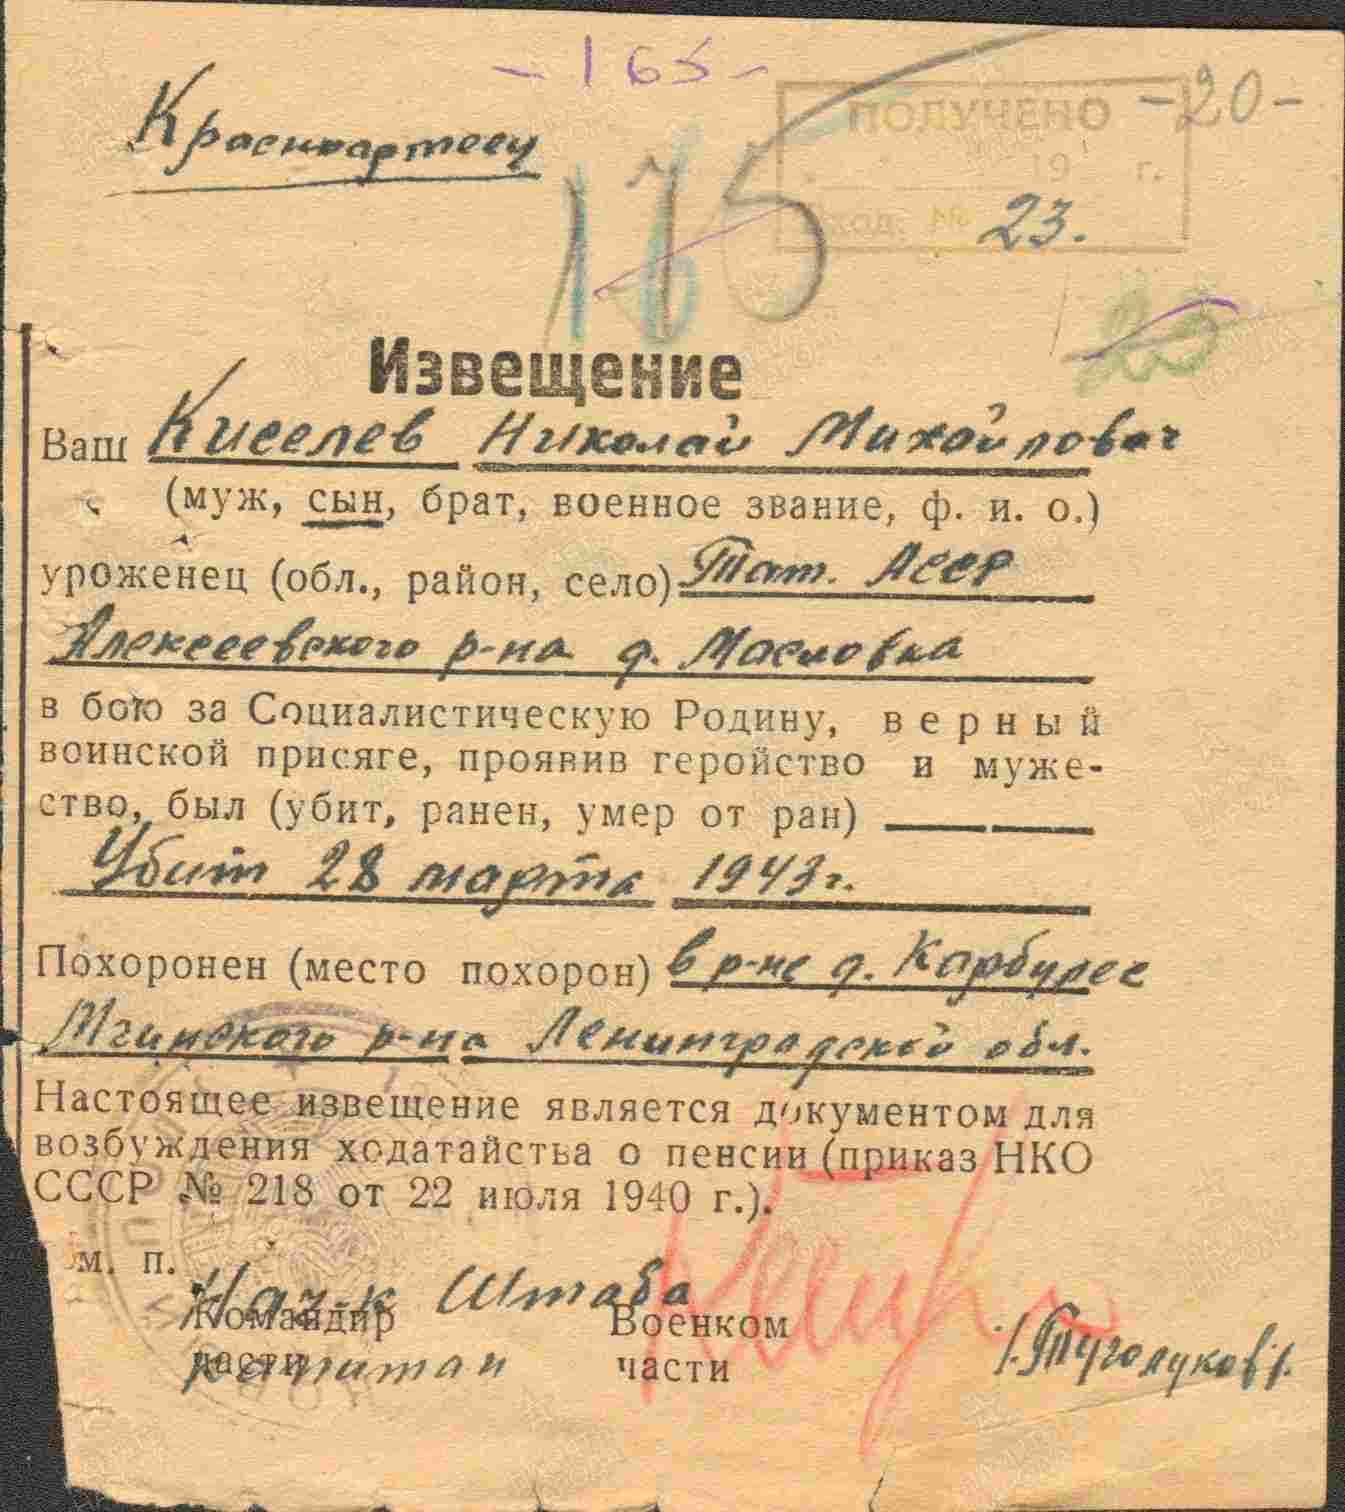 - 165 -
Красноармеец
ПОЛУЧЕНО
- 20 -
19 г.
175
ВХОД. № 23.
20
Извещение
Ваш Киселев Николай Михайлович
(муж, сын, брат, военное звание, ф. и. о.)
уроженец (обл., район, село) Тат. АССР
Алексеевского р-на д. Масловка
в бою за Социалистическую Родину, верный
воинской присяге, проявив геройство и муже-
ство, был (убит, ранен, умер от ран)
Убит 28 марта 1943 г.
Похоронен (место похорон) в р-не д. Карбусее
Мгинского р-на Ленинградской обл.
Настоящее извещение является документом для
возбуждения ходатайства о пенсии (приказ НКО
СССР № 218 от 22 июля 1940 г.).
м. п.
Нач-к Штаба
Командир Военком
части части
капитан /Туголуков/.